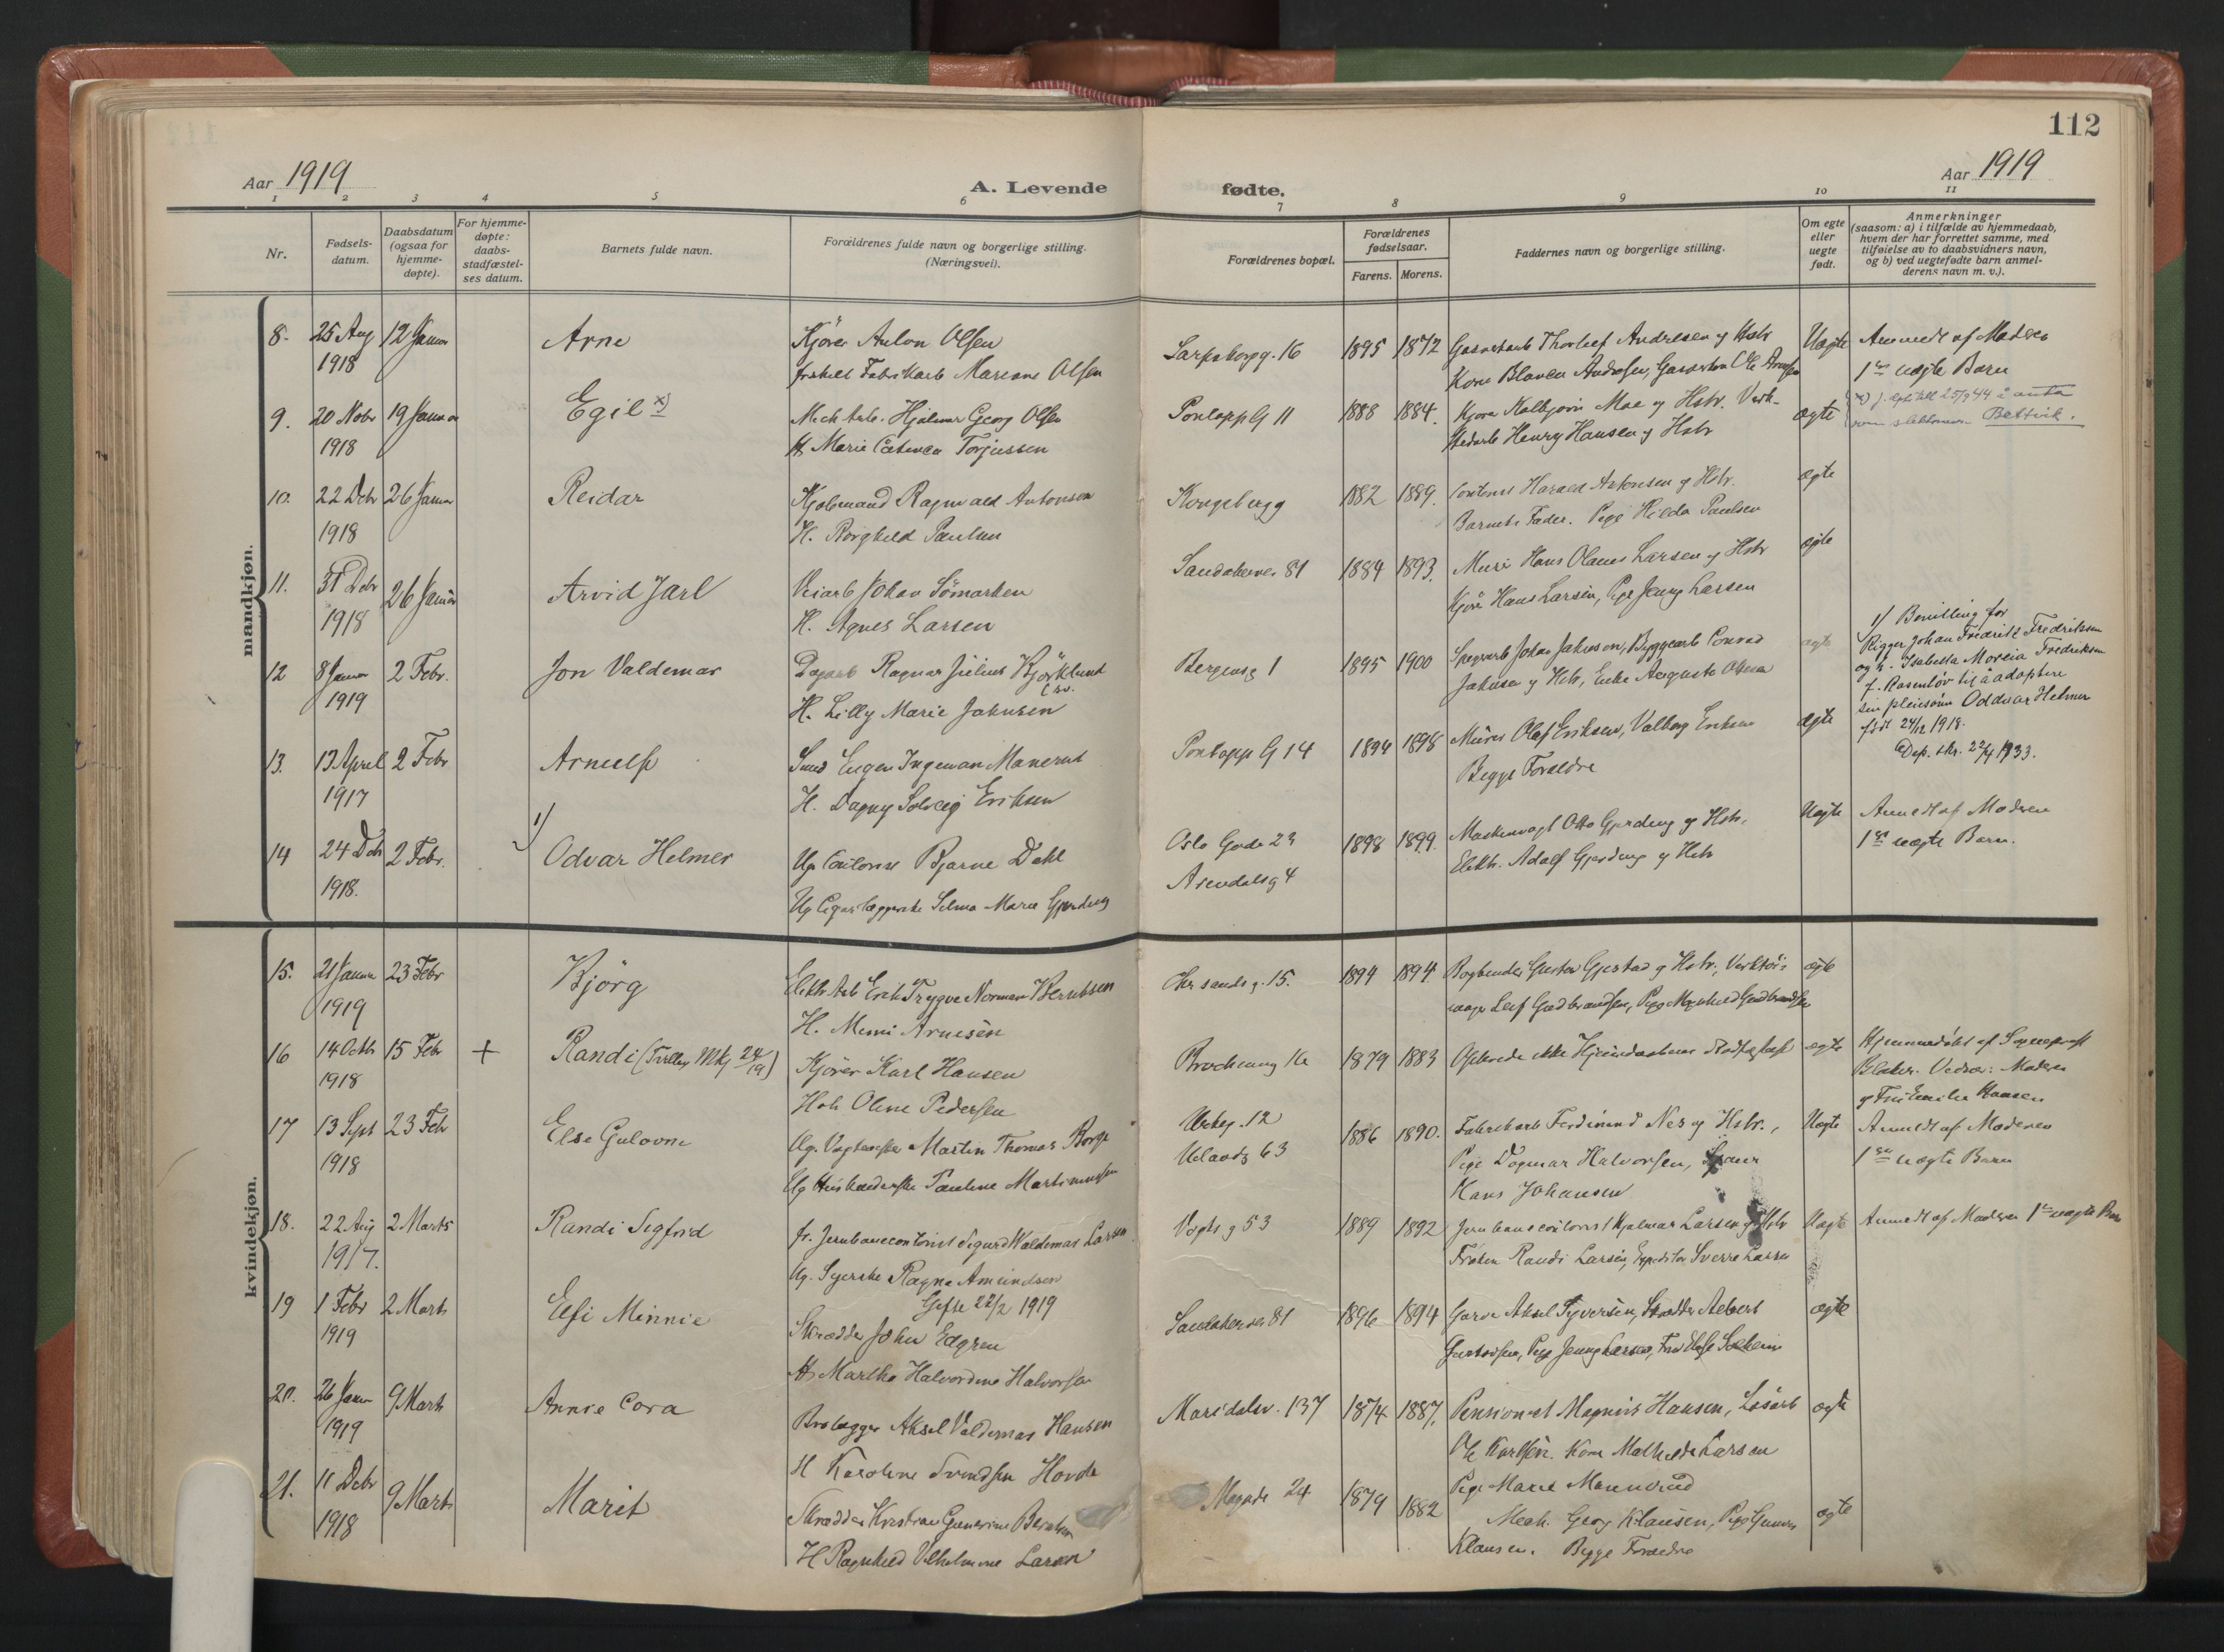 112
Aar 1919
A. Levende
fødte.
Aar 1919
1 2 3 4 5 6 7 8 9 10 11
Nr.
Fødsels-
datum.
Daabsdatum
(ogsaa for
hjemme-
døpte).
For hjemme-
døpte:
daabs-
stadfæstel-
ses datum.
Barnets fulde navn.
Forældrenes fulde navn og borgerlige stilling.
(Næringsvei).
Forældrenes bopæl.
Forældrenes
fødselsaar.
Farens. Morens.
Faddernes navn og borgerlige stilling.
Om egte
eller
uegte
født.
Anmerkninger
(saasom: a) i tilfælde av hjemmedaab,
hvem der har forrettet samme, med
tilføielse av to daabsvidners navn,
og b) ved uegtefødte barn anmel-
derens navn m. v.).
mandkjøn.
8. 25 Aug 12 Januar Arne Kjører Anton Olsen Sarpsborgg. 16 1895 1872 Thorleif Andresen og Hstr Uægte Anmeldt af Moderen
1918 Fabrikarb Mariane Olsen Kone 1ste uægte Barn
9. 20 Novbr 19 Januar Egil x) Mek Arb. Hjalmar Georg Olsen Pontopp G 11 1888 1884. Kjører Kolbjørn Moe og Hstr. Verk- ægte
1918 H Marie Torjussen stedarb Henry Hansen og Hstr som slektsnavn Bettvik.
10. 22 Debr 26 Januar Reidar Kjøbmand Ragnvald Antonsen Kongsbergg 1882 1889. Harald Antonsen og Hstr. ægte
1918 H. Borghild Paulsen Barnets Fader. Pige Hilda Paulsen
11. 31 Debr 26 Januar Arvid Jarl Veiarb Johan Sömarken Sandakerver 81 1884 1893. Murer Hans Olaus Larsen og Hstr ægte
1918 H. Agnes Larsen Kjører Hans Larsen, Pige Jenny Larsen
12 8 Januar 2 Febr. Jon Valdemar Dagarb Ragnar Julius Bjørklund Bergensg 1 1895 1900 Johan Jakobsen, Byggearb Conrad ægte
1919 H. Lilly Marie og Hstr, Enke Augusta Olsen
1) Bevilling for
Rigger Johan Fredrik Fredriksen
og h. Isabella Fredriksen
f. Rosenlöv til å adoptere
sin pleiesönn Oddvar Helmer
född 24/12 1918.
Dep. skr. 22/4 1933.
13. 13 April 2 Febr Arnulf Smed Eugen Ingeman Manerud Pontopp G 14 1894 1898 Murer Olaf Eriksen, Valborg Eriksen ægte
1917 H. Dagny Solveig Eriksen Begge Forældre
14 24 Debr 2 Febr. 1) Odvar Helmer Ug Contorist Bjarne Dahl Oslo Gade 23 1898 1899. Otto Gjerding og Hstr. Uægte Anmeldt af Moderen
1918. Ug Selma Marie Gjerding Arendalsg 4 Elektr. Adolf Gjerding og Hstr 1ste uægte Barn.
kvindekjøn.
15. 21 Januar 23 Febr Björg Elektr Arb Erik Trygve Norman Berntsen Chr sandsg. 15. 1894 1894. Bogbinder Gustav Gjestad og Hstr., ægte
1919 H. Mimi Arnesen Leif Gudbrandsen, Pige Gudbrandsen
16 14 Octbr 15 Febr + Randi (Tvilling Mkj 24/19) Kjører Karl Hansen 1879 1883 ikke ægte Hjemmedöbt af
1918 Hstr Oline Pedersen Moderen
Hansen
17 13 Sept 23 Febr Else Gulovne Ug. Martin Thomas Borge 12 1886 1890. Fabrikarb Ferdinand Nes og Hstr., Uægte Anmeldt af Moderen
1918 Ug Pauline Uelandsg 63 Pige Dagmar Halvorsen, 1ste uægte Barn
Hans Johansen
18. 22 Aug 2 Marts Randi Sigfrid fr. Jernbanecontorist Sigurd Waldemar Larsen Vogts g 53 1889 1892 Jernbanecontorist Hjalmar Larsen og Hstr Uægte Anmeldt af Moderen 1ste uægte Barn
1917. Ug. Syerske Ragna Amundsen Frøken Randi Larsen, Expeditør Sverre Larsen
Gifte 22/2 1919
19 1 Febr 2 Marts Elfi Minnie Skrædder John Edgren Sandakerver 81 1896 1894 Aksel Syversen, Skrædder Albert ægte
1919 H Martha Halvordine Halvorsen Pige Jenny Larsen,
20. 26 Januar 9 Marts Annie Cora Brolægger Aksel Valdemar Hansen Maridalsv. 137 1874 1887. Pensionist Magnus Hansen, Løsarb ægte
1919 H Karoline Svendsen Hovde Ole Karlsen. Kone Mathilde Larsen
Pige Marie
21. 11 Debr 9 Marts Marit Skrædder Kristian 24 1879 1882 Mek. Georg Klausen, Pige ægte
1918 H Ragnhild Vilhelmine Larsen Klausen. Begge Forældre